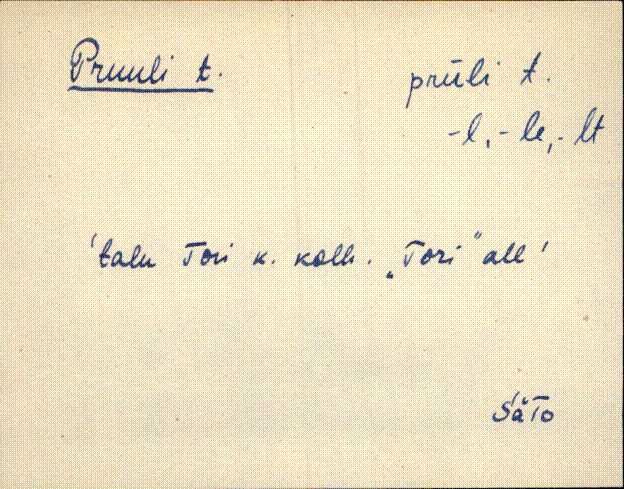 Pruuli t.
prūli t.
-l, -le, -lt
'talu Tori k. kolh. „Tori" all'
SäTo